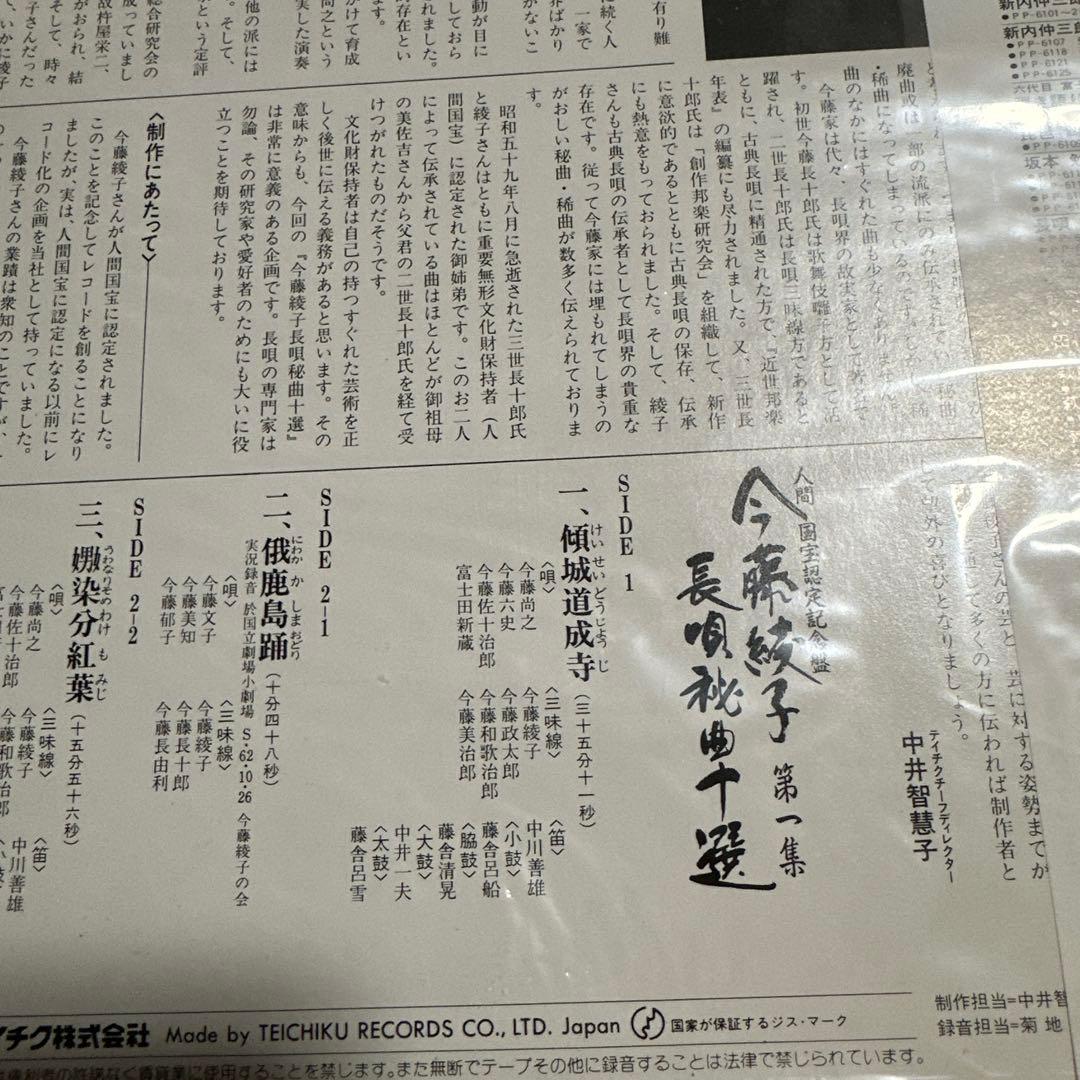 新内仲三郎
●PP-6101~2
新内仲三郎
●PP-6107
●PP-6118
●PP-6121
●PP-6125
有り難
に続く人
一家で
界ばかり
がないこ
動が目に
しておら
れました。
存在とい
ます。
かけて育成
実した演奏
他の派には
総合研究会の
成っていまし
故杵屋栄二、
がおられ、結
そして、時々
廃曲或は一部の流派にのみ伝承され
・稀曲になってしまっているのです。
曲のなかにはすぐれた曲も少な
今藤家は代々、長唄界の故実家として
す。初世今藤長十郎氏は歌舞伎囃子方として活
躍され、二世長十郎氏は長唄三味線方であると
ともに、古典長唄に精通された方で、『近世邦楽
年表』の編纂にも尽力されました。又、三世長
十郎氏は「創作邦楽研究会」を組織して、新作
に意欲的であるとともに古典長唄の保存、伝承
にも熱意をもっておられました。そして、綾子
さんも古典長唄の伝承者として長唄界の貴重な
存在です。従って今藤家には埋もれてしまうの
がおしい秘曲・稀曲が数多く伝えられておりま
す。
昭和五十九年八月に急逝された三世長十郎氏
と綾子さんはともに重要無形文化財保持者（人
間国宝）に認定された御姉弟です。このお二人
によって伝承されている曲はほとんどが御祖母
の美佐吉さんから父君の二世長十郎氏を経て受
けつがれたものだそうです。
文化財保持者は自己の持つすぐれた芸術を正
しく後世に伝える義務があると思います。その
意味からも、今回の『今藤綾子長唄秘曲十選』
は非常に意義のある企画です。長唄の専門家は
勿論、その研究家や愛好者のためにも大いに役
立つことを期待しております。
〈制作にあたって〉
今藤綾子さんが人間国宝に認定されました。
このことを記念してレコードを創ることになり
ましたが、実は、人間国宝に認定になる以前にレ
コード化の企画を当社として持っていました。
今藤綾子さんの業績は衆知のことですが、
芸に対する姿勢までが
多くの方に伝われば制作者と
して望外の喜びとなりましょう。
テイチクチーフディレクター
中井智慧子
人間国宝認定記念盤
今藤綾子 第一集
長唄秘曲十選
SIDE 1
一、傾城道成寺（三十五分十一秒）
けいせいどうじょうじ
〈唄〉
今藤尚之
今藤六史
今藤佐十治郎
富士田新蔵
〈三味線〉
今藤綾子
今藤政太郎
今藤和歌治郎
今藤美治郎
〈笛〉
中川善雄
〈小鼓〉
藤舎呂船
〈脇鼓〉
藤舎清晃
〈大鼓〉
中井一夫
〈太鼓〉
藤舎呂雪
SIDE 2-1
二、俄鹿島踊（十分四十八秒）
にわかかしまおどり
実況録音 於国立劇場小劇場 S・62・10・26 今藤綾子の会
〈唄〉
今藤文子
今藤美知
今藤郁子
〈三味線〉
今藤綾子
今藤長十郎
今藤長由利
SIDE 2-2
三、嫐染分紅葉（十五分五十六秒）
うわなりそめわけもみじ
〈唄〉
今藤尚之
今藤佐十治郎
〈三味線〉
今藤綾子
今藤和歌治郎
〈笛〉
中川善雄
制作担当=中井智
録音担当=菊地
イチク株式会社 Made by TEICHIKU RECORDS CO., LTD. Japan 国家が保証するジス・マーク
権利者の許諾なく賃貸業に使用することを禁じます。また無断でテープその他に録音することは法律で禁じられています。